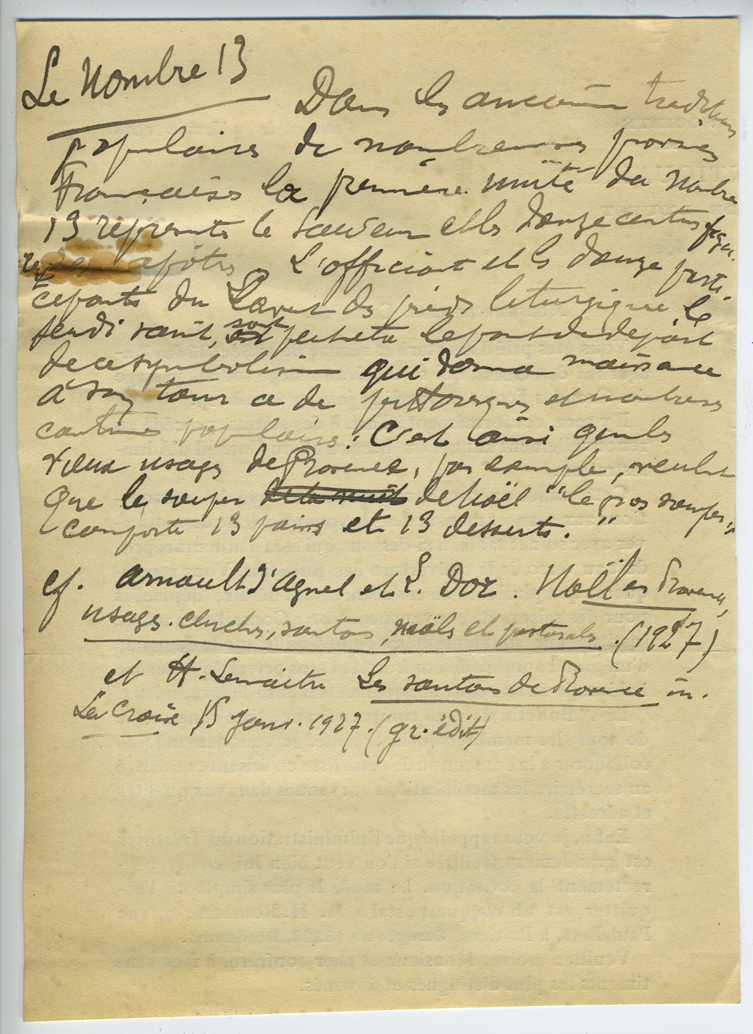 Le Nombre 13
Dans les anciennes traditions
populaires de nombreuses provinces
Françaises la première unité du nombre
13 représente le Sauveur et les douze centres figu-
rés apôtres. L'officiant et les douze parti-
cipants du Lavement des pieds liturgique le
jeudi saint, sont le point de départ
de ce symbolisme qui donna naissance
à son tour a de pittoresques et nombreuses
coutumes populaires. C'est ainsi que les
vieux usages de Provence, par exemple, veulent
que le souper de la nuit de Noël "le gros souper,"
comporte 13 pains et 13 desserts."
cf. Arnault d'Agnel et L. Dor. Noël en Provence,
usages. crèches, santons, noëls et pastorales. (1927)
et H. Lemaitre Les santons de Provence in.
La Croix 15 janv. 1927. (gr. édit)